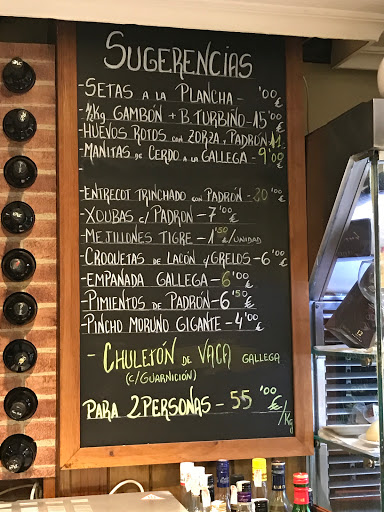 SUGERENCIAS
-SETAS A LA PLANCHA - '00 €
-½Kg GAMBÓN + B.TURBIÑO-15'00 €
-HUEVOS ROTOS CON ZORZA Y PADRÓN 11
-MANITAS DE CERDO A LA GALLEGA - 9'00 €
-
-ENTRECOT TRINCHADO CON PADRÓN-20'00
-XOUBAS C/ PADRÓN - 7'00 €
-MEJILLONES TIGRE - 1'50 €/UNIDAD
-CROQUETAS DE LACÓN Y GRELOS-6'00 €
-EMPANADA GALLEGA-6'00 €
-PIMIENTOS DE PADRÓN-6'50 €
-PINCHO MORUNO GIGANTE-4'00 €
- CHULETÓN DE VACA GALLEGA
(C/GUARNICIÓN)
PARA 2 PERSONAS - 55'00 €/Kg